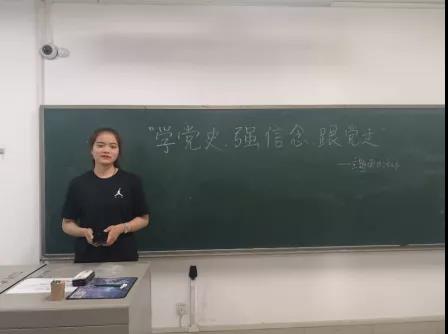 "学党史、强信念、跟党走"